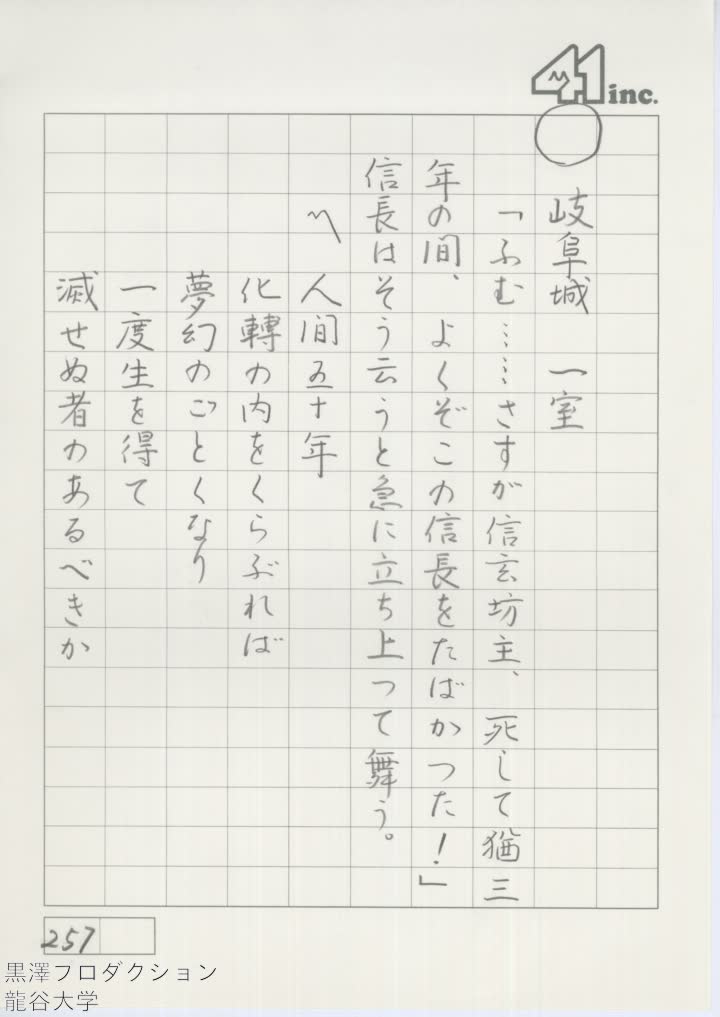 41 inc.
○
岐阜城 一室
「ふむ……さすが信玄坊主、死して猶三
年の間、よくぞこの信長をたばかつた！」
信長はそう云うと急に立ち上つて舞う。
〽 人間五十年
化轉の内をくらぶれば
夢幻のごとくなり
一度生を得て
滅せぬ者のあるべきか
257
黒澤フロダクション
龍谷大学